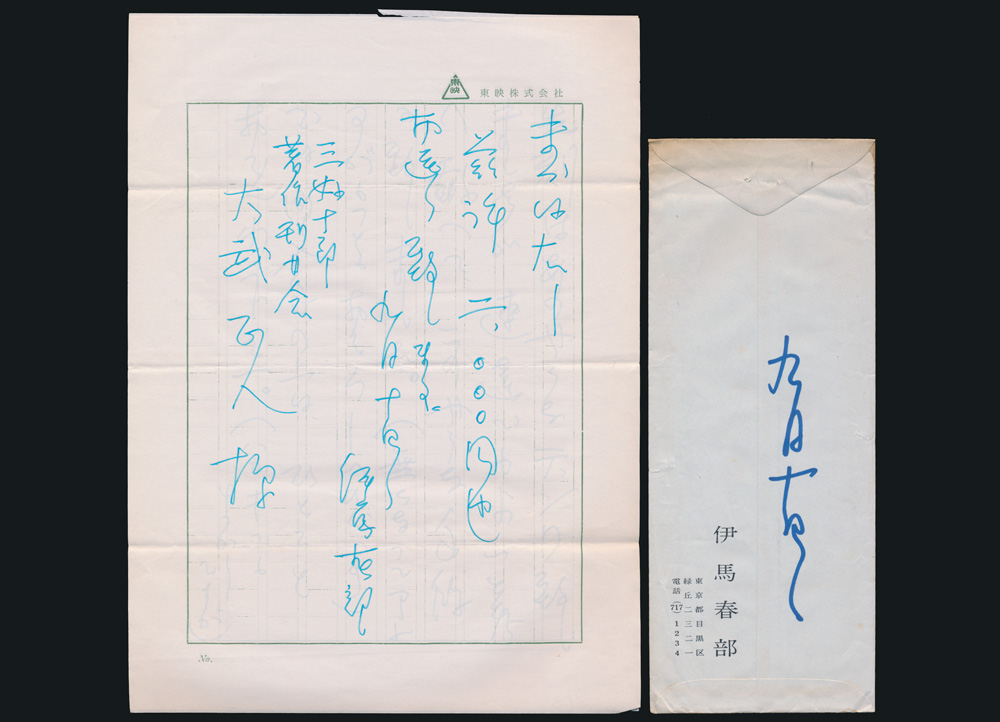 東映
東映株式会社
二、〇〇〇円也
お送り
九月十日
伊馬春部
三好十郎
著作刊行会
大武正人 様
No.
九月十日
伊馬春部
東京都目黒区
緑丘二三二一
電話(717)1234